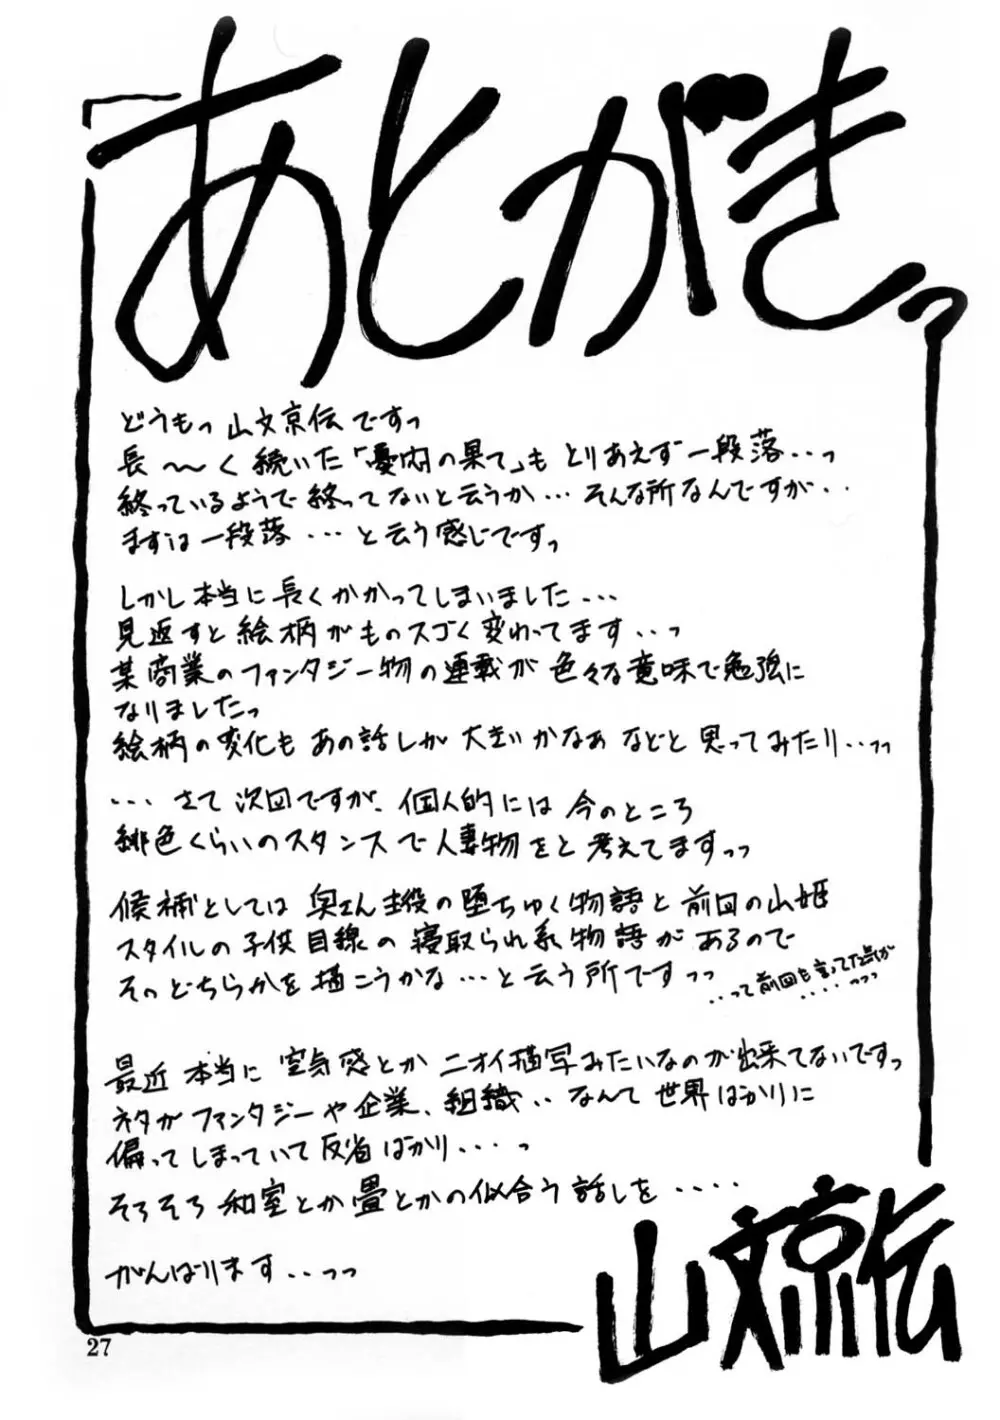 あとがきっ
どうもっ 山文京伝ですっ
長～～く続いた「憂内の果て」も とりあえず一段落‥っ
終っているようで終ってないと云うか… そんな所なんですが‥
まずは一段落…と云う感じですっ
しかし本当に長くかかってしまいました…
見返すと絵柄がものスゴく変わってます‥っ
某商業のファンタジー物の連載が色々な意味で勉強に
なりましたっ
絵柄の変化も あの話しが 大きいかなぁ などと 思ってみたり‥っっ
…さて次回ですが、個人的には 今のところ
緋色くらいのスタンスで人妻物をと 考えてますっっ
候補としては 奥さん主役の堕ちゆく物語と 前回の山姫
スタイルの子供目線の寝取られ系物語が あるので
そのどちらかを描こうかな…と云う所ですっっ
‥って前回も言ってた気が
‥‥っっっ
最近 本当に 空気感とか ニオイ描写みたいなのが出来てないですっ
ネタがファンタジーや企業、組織‥なんて世界ばかりに
偏ってしまっていて反省ばかり‥‥っ
そろそろ 和室とか畳とかの似合う話しを‥‥
がんばります‥っっ
山文京伝
27